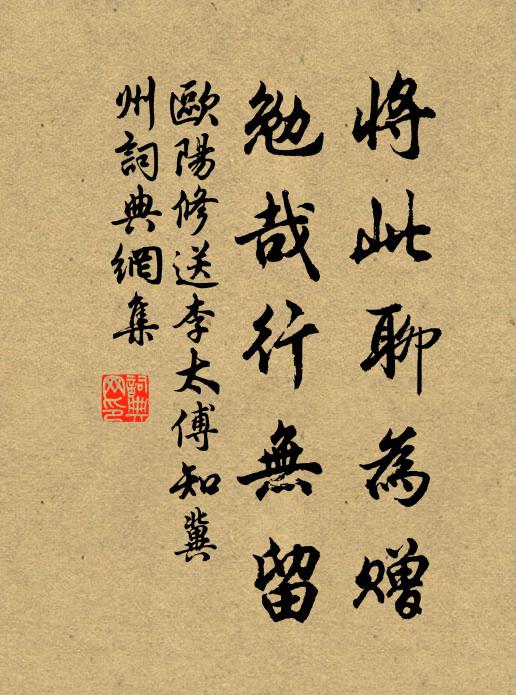 將此聊為贈
勉哉行無留
歐陽修送李太傅知冀
州詞典網集
詞典
网